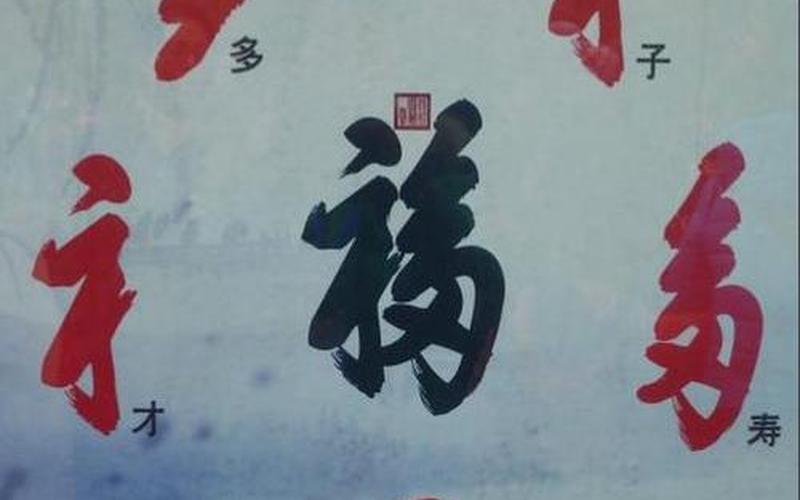 多 子
福
才 寿